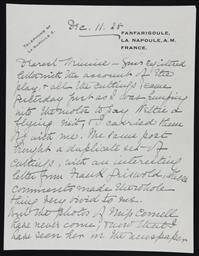 Dec. 11. 28
TELEPHONE 72
LA NAPOULE
FANFARIGOULE,
LA NAPOULE, A.M.
FRANCE.
Dearest Minnie – Your registered
letter with the account of the
play & all the cuttings, came
yesterday just as I was jumping
into the motor to pay Hilda a
flying visit, & I carried them
off with me. The same post
brought a duplicate set of
cuttings, with an interesting
letter from Frank Griswold, whose
comments made the whole
thing very vivid to me.
Only the photos of Miss Cornell
have never come; & now that I
have seen her in the newspaper